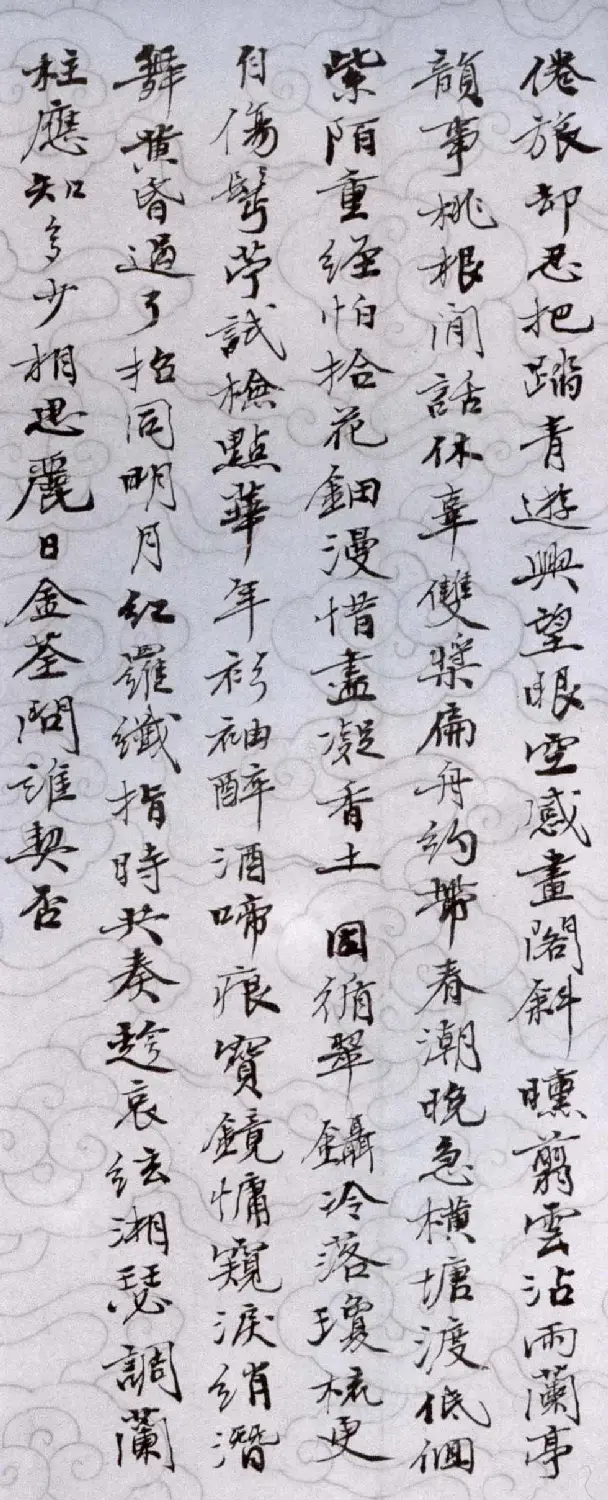 倦旅却忍把踏青遊興望眼空感畫閣斜曛翦雲沾雨蘭亭
韻事桃根閒話休辜雙槳扁舟約帶春潮晚急橫塘渡低徊
紫陌重經怕拾花鈿漫惜盡凝香土 因循翠鑷冷落瓊梳更
自傷鬢苧試檢點華年衫袖醉酒啼痕寶鏡慵窺淚綃潛
舞黃昏過了招同明月紅羅纖指時共奏趁哀絃湘瑟調蘭
柱應知多少相思麗日金荃問誰契否